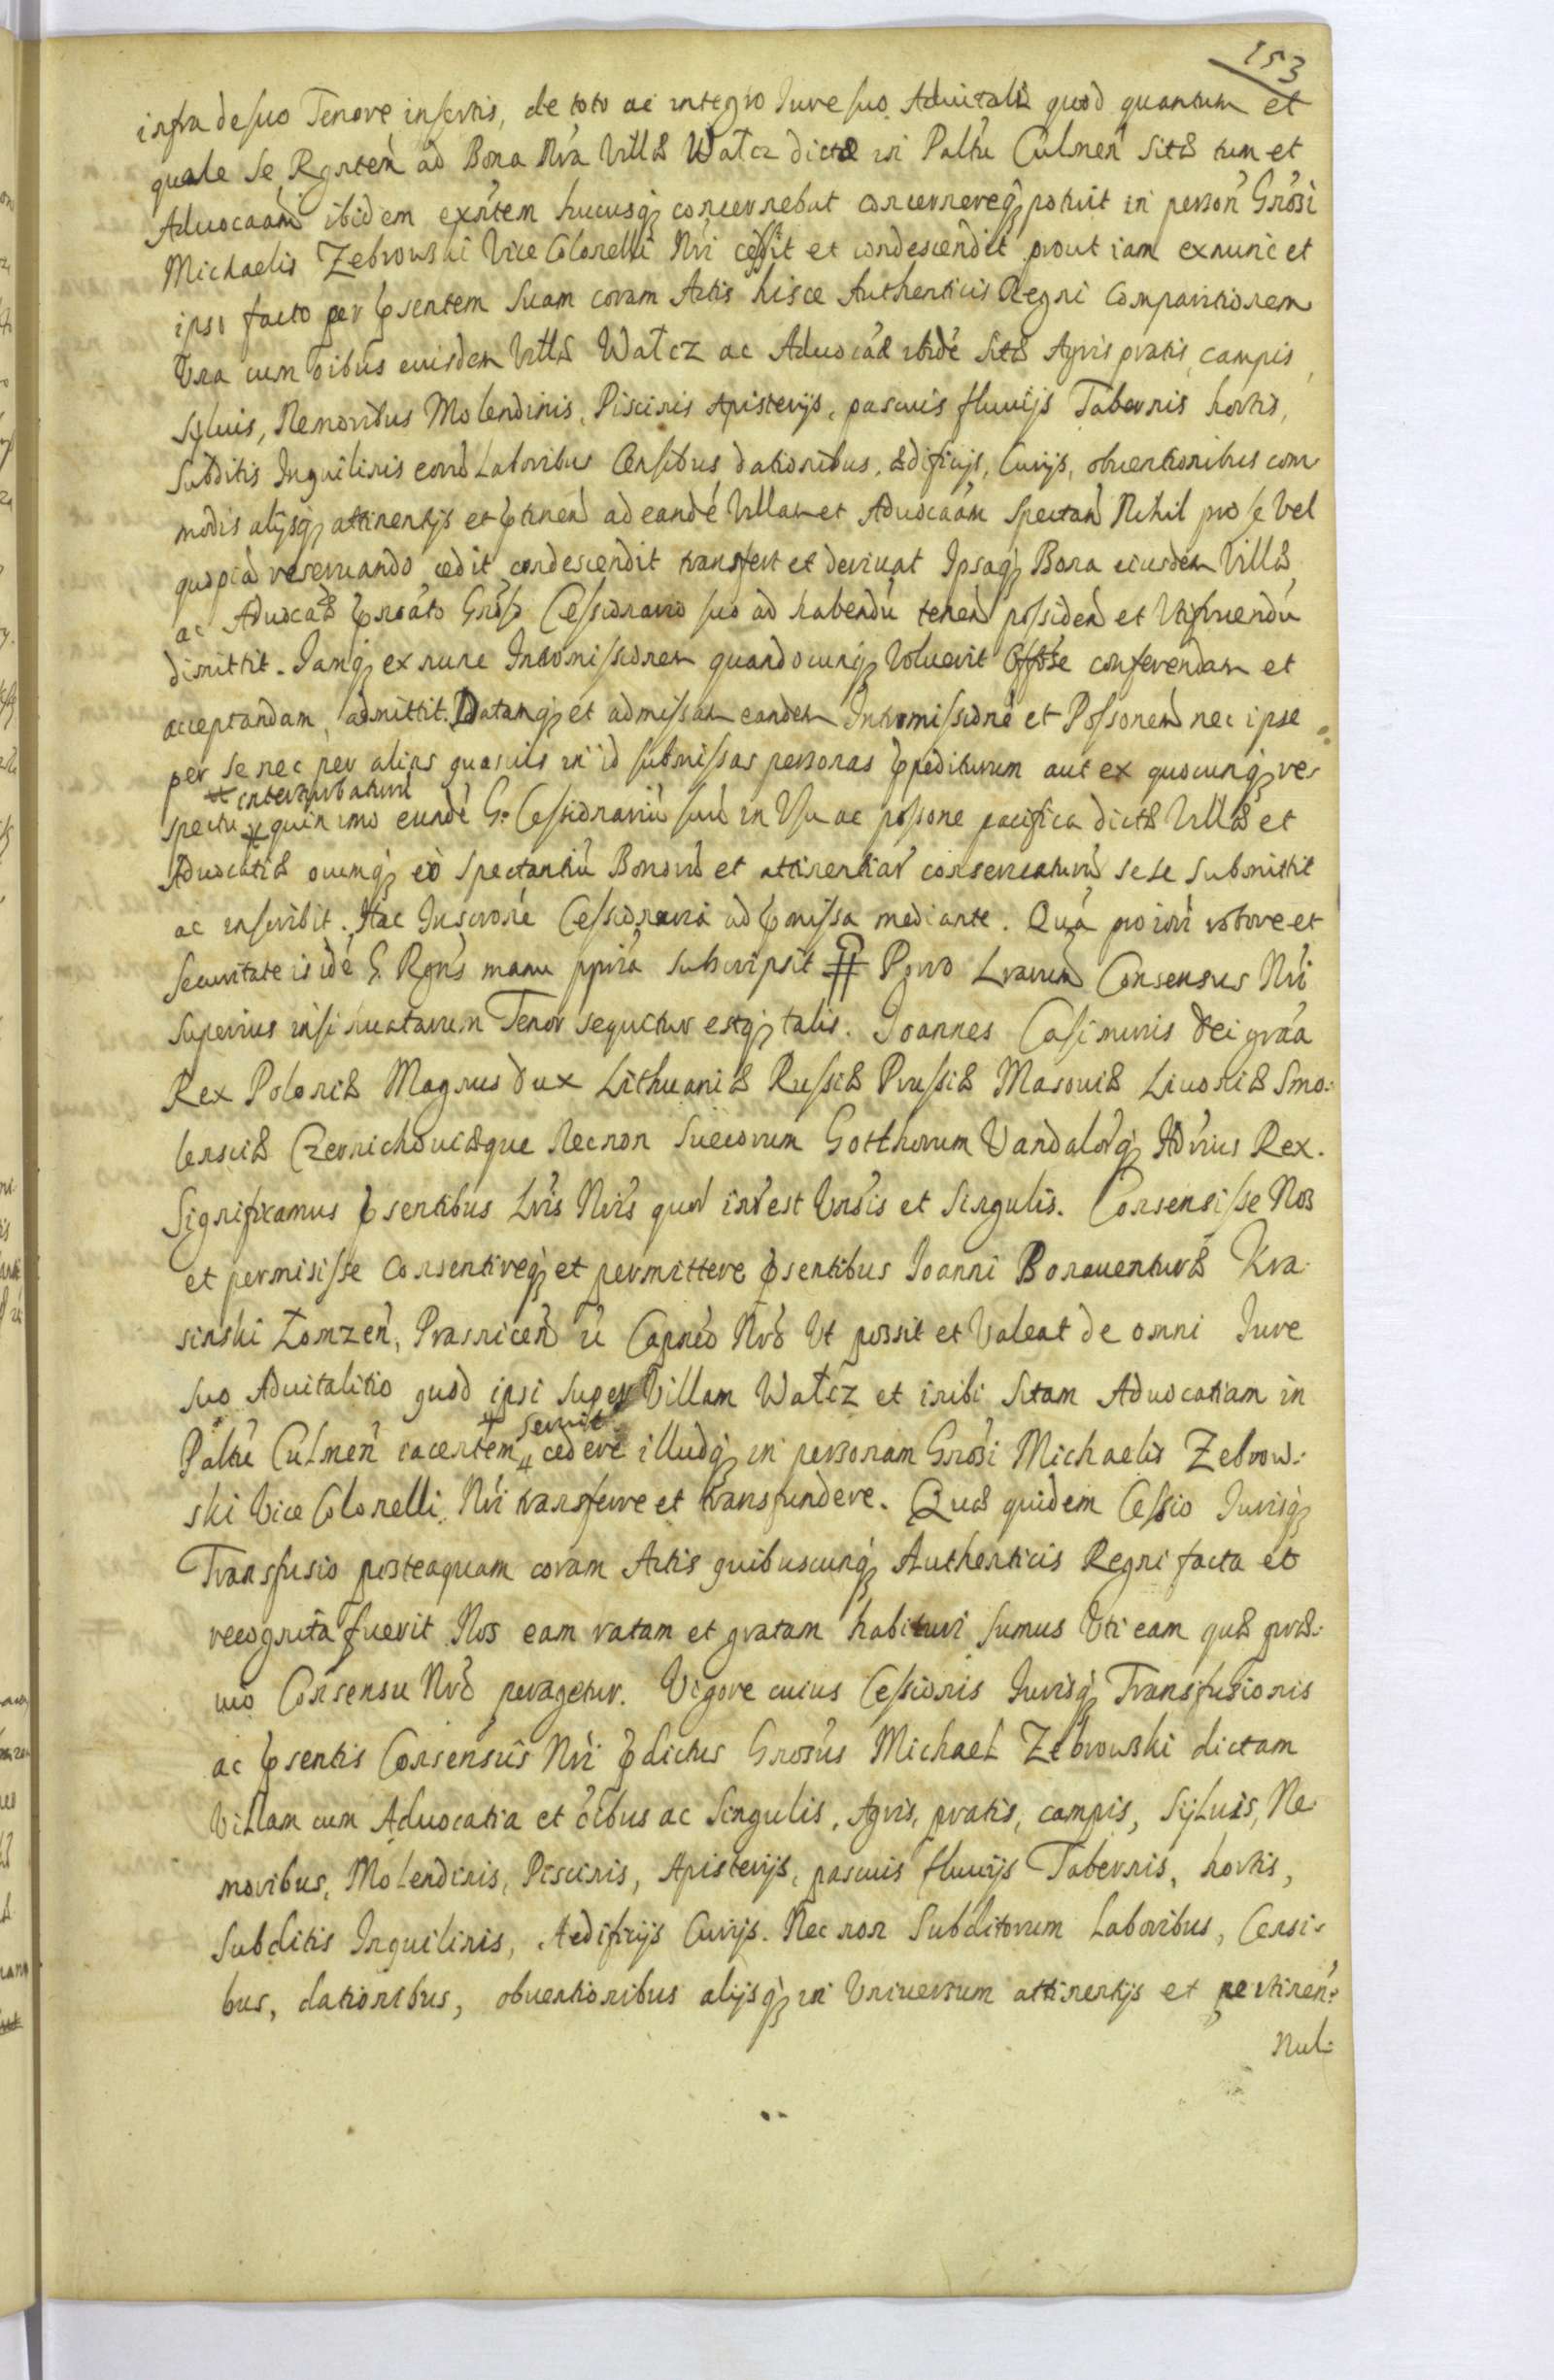 153
infra de suo Tenore insertis, de toto ac integro Jure suo Advitali quod quantum et
quale se Rgntem ad Bona Nra Villæ Wałcz dictæ in Paltu Culmen Sitæ tum et
Advocaam ibidem exntem hucusq concernebat concernereq potuit in person Grosi
Michaelis Zebrowski Vice Colonelli Nri cessit et condescendit prout iam exnunc et
ipso facto per psentem Suam coram Actis hisce Authenticis Regni Comparitionem
Una cum oibus eiusdem Villæ Wałcz ac Advocaæ ibidé Sitæ Agris pratis, campis,
Syluis, Nemoribus Molendinis, Piscinis Apisterijs, pascuis fluuijs Tabernis hortis,
Subditis Inquilinis eorū Laboribus Censibus dationibus, ædificijs, Curijs, obuentionibus com
modis alijsq attinentijs et ptinen ad eandé Villam et Advocaam Spectan Nihil pro se Vel
quopiā reseruando cedit condescendit transfert et deriuat Ipsaq Bona eiusdem Villæ
ac Advocaæ pnoato Groso Cessionario suo ad habendū tenen possiden et Utifruendū
dimittit. Jamq exnunc Intromissionem quandocunq Voluerit Offose conferendam et
acceptandam, admittit. Datamq et admissam eandem Intromissioné et Possonem nec ipse
per se nec per alias quasuis in id submissas personas ppediturum aut ex quocunq re
interturbaturū
spectu quin imo eundé G. Cessionariū suū in Usu ac possone pacifica dictæ Villæ et
Advocatiæ oiumq eò Spectantiū Bonorū et attinentiar conseruaturū sese Submittit
ac inscribit. Hac Inscrone Cessionaria ad pmissa mediante. Quá pro iori robore et
Securitate is idé G. Rgns manu ppria Subscripsit Porro Lrarum Consensus Nri
Superius insinuatarum Tenor sequitur estq talis. Joannes Casimirus Dei graa
Rex Poloniæ Magnus Dux Lithuaniæ Russiæ Prussiæ Masouiæ Liuoniæ Smo
lensciæ Czernichouiæque Necnon Suecorum Gotthorum Vandalorq Hdrius Rex.
Significamus psentibus Lris Nris quor inrest Unsis et Singulis. Consensisse Nos
et permisisse Consentireq et permittere psentibus Joanni Bonauenturæ Kra
sinski Łomzen, Prasnicen ū Capneo Nro Ut possit et Valeat de omni Jure
suo Aduitalitio quod ipsi super Villam Wałcz et inibi Sitam Aduocatiam in
seruit
Paltu Culmen iacentem cedere illudq in personam Grosi Michaelis Zebrow
ski Vice Colonelli Nri transferre et transfundere. Quæ quidem Cessio Jurisq
Transfusio posteaquam coram Actis quibuscunq Authenticis Regni facta et
recognita fuerit Nos eam ratam et gratam habituri sumus Uti eam quæ præ
uio Consensu Nro peragetur. Vigore cuius Cessionis Jurisq Transfusionis
ac psentis Consensûs Nri pdictus Grosus Michael Zebrowski dictam
Villam cum Aduocatia et oibus ac Singulis, Agris, pratis, campis, Syluis, Ne
moribus, Molendinis, Piscinis, Apisterijs, pascuis fluuijs Tabernis, hortis,
Subditis Inquilinis, Aedificijs Curijs. Nec non Subditorum Laboribus, Censi
bus, dationibus, obuentionibus alijsq in Uniuersum attinentijs et pertinen:
Nul: